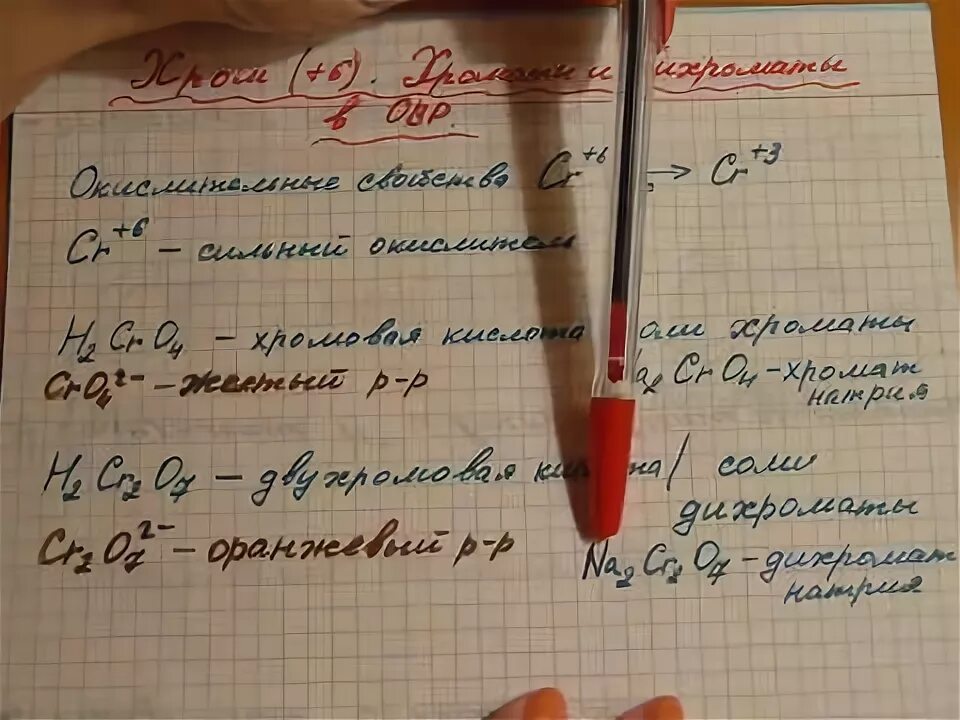 Хром (+6). Хроматы и дихроматы
в ОВР.
Окислительные свойства Cr⁺⁶ → Cr⁺³
Cr⁺⁶ – сильный окислитель
H₂CrO₄ – хромовая кислота соли хроматы
CrO₄²⁻ – желтый р-р
Na₂CrO₄ – хромат
натрия
H₂Cr₂O₇ – двухромовая кислота/ соли
дихроматы
Cr₂O₇²⁻ – оранжевый р-р
Na₂Cr₂O₇ – дихромат
натрия